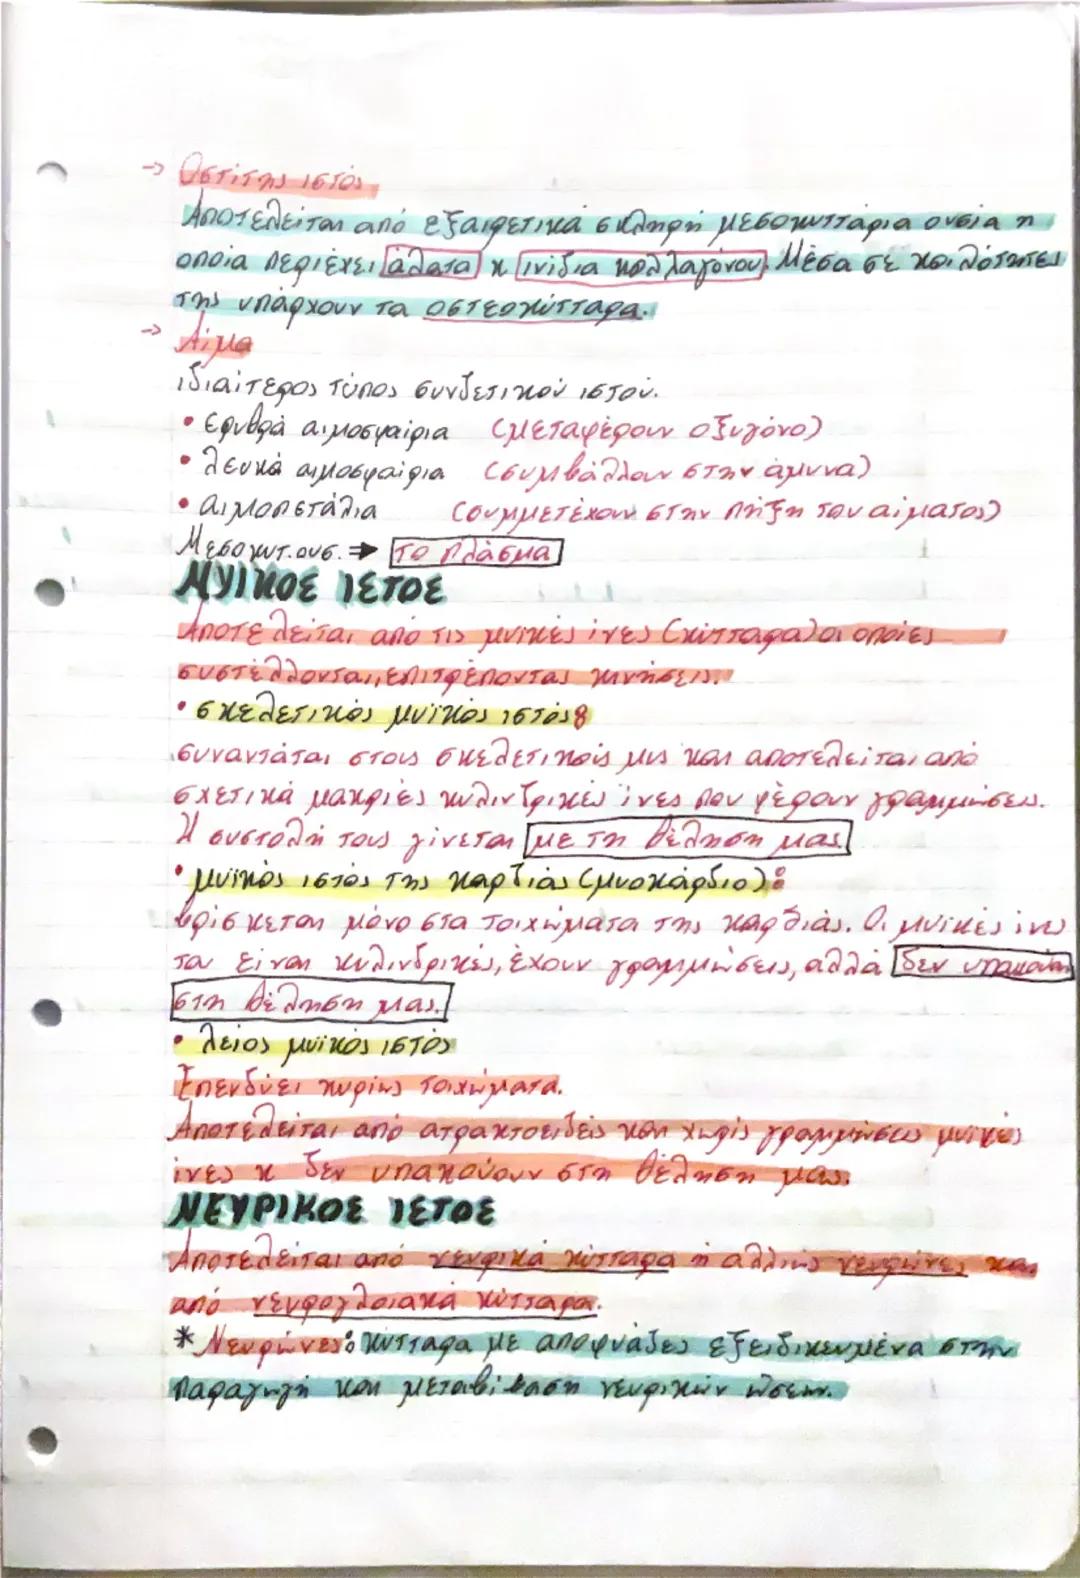 → Οστίτης ιστός
Αποτελείται από εξαιρετικά σκληρή μεσοκυττάρια ουσία η
οποία περιέχει άλατα κ ινίδια κολλαγόνου. Μέσα σε κοιλότητες
της υπάρχουν τα οστεοκύτταρα.
→ Αίμα
ιδιαίτερος τύπος συνδετικού ιστού.
• ερυθρά αιμοσφαίρια (μεταφέρουν οξυγόνο)
• λευκά αιμοσφαίρια (συμβάλλουν στην άμυνα)
• αιμοπετάλια (συμμετέχουν στην πήξη του αίματος)
Μεσοκυτ. ουσ. ➔ το πλάσμα
ΜΥΙΚΟΣ ΙΣΤΟΣ
Αποτελείται από τις μυικές ίνες (κύτταρα) οι οποίες
συστέλλονται, επιτρέποντας κινήσεις.
• σκελετικός μυϊκός ιστός:
συναντάται στους σκελετικοίς μυς και αποτελείται από
σχετικά μακριές κυλινδρικές ίνες που φέρουν γραμμώσεις.
Η συστολή τους γίνεται με τη θέληση μας.
• μυϊκός ιστός της καρδιάς (μυοκάρδιο):
βρίσκεται μόνο στα τοιχώματα της καρδιάς. Οι μυϊκές ίνες
του είναι κυλινδρικές, έχουν γραμμώσεις, αλλά δεν υπακούν
στη θέληση μας.
• λείος μυϊκός ιστός
Επενδύει κυρίως τοιχώματα.
Αποτελείται από ατρακτοειδείς και χωρίς γραμμώσεις μυϊκές
ίνες κ δεν υπακούουν στη θέληση μας.
ΝΕΥΡΙΚΟΣ ΙΣΤΟΣ
Αποτελείται από νευρικά κύτταρα ή αλλιώς νευρώνες και
από νευρογλοιακά κύτταρα.
* Νευρώνες: κύτταρα με αποφυάδες εξειδικευμένα στην
παραγωγή και μεταβίβαση νευρικών ώσεων.